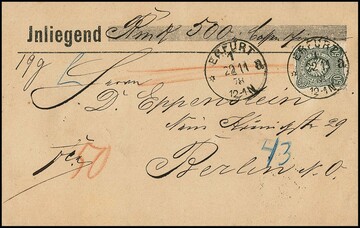 Inliegend Rmk 500.
ERFURT
1 a.
22 11
78
12-1N
ERFURT
12-1N
19g
Herrn
Dr. Eppenstein
Neue Königstr 29
Berlin N.O.
50
43